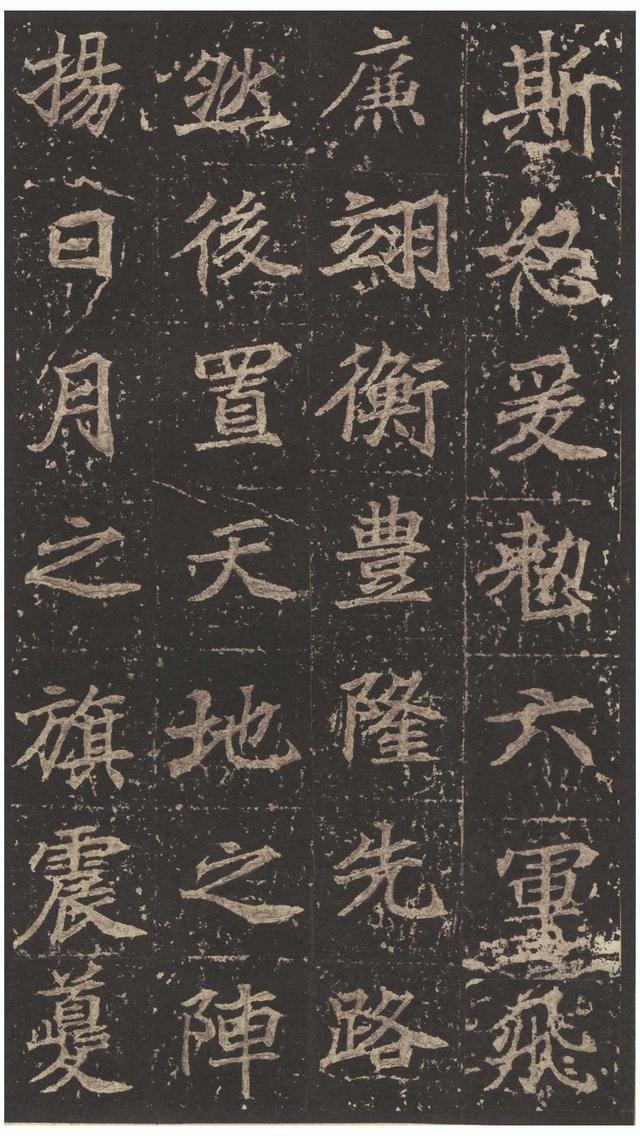 斯怒爰整六軍飛
廉翊衡豊隆先路
然後置天地之陣
揚日月之旗震夔